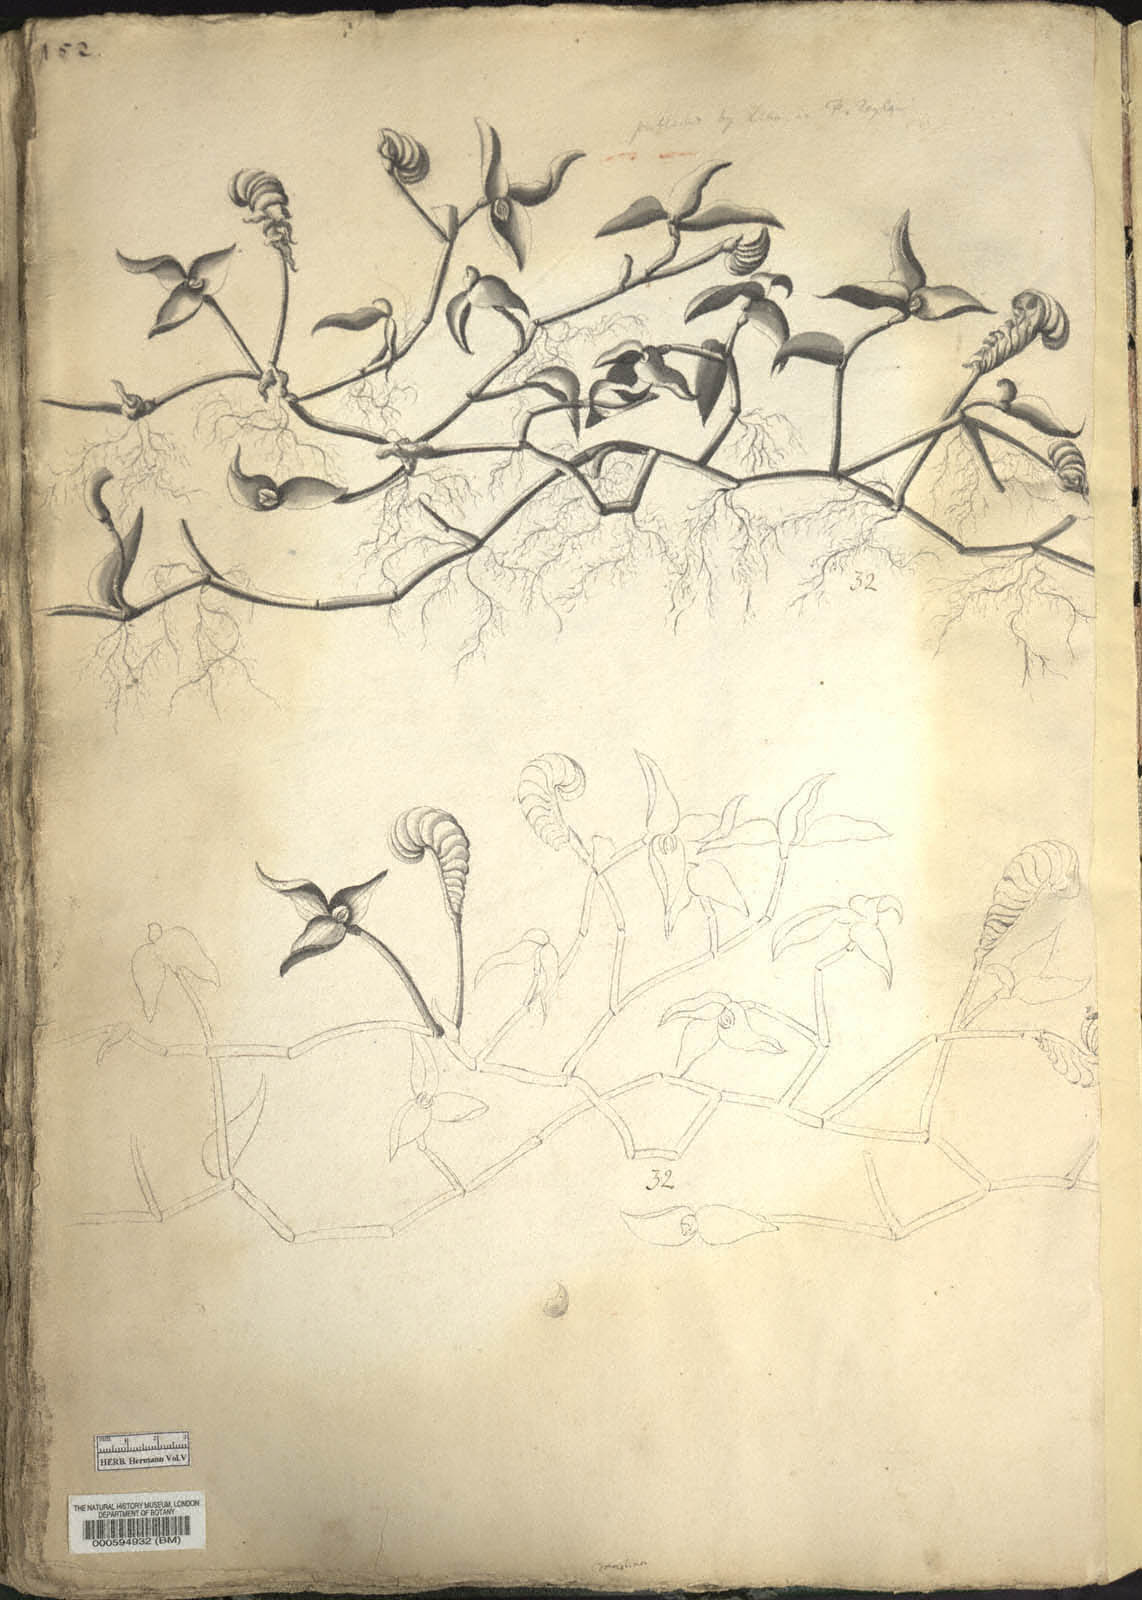 152.
published by Linn. in Fl. Zeylan
32
32
mm 1 2 3
HERB. Hermann Vol.V
THE NATURAL HISTORY MUSEUM, LONDON
DEPARTMENT OF BOTANY
000594932 (BM)